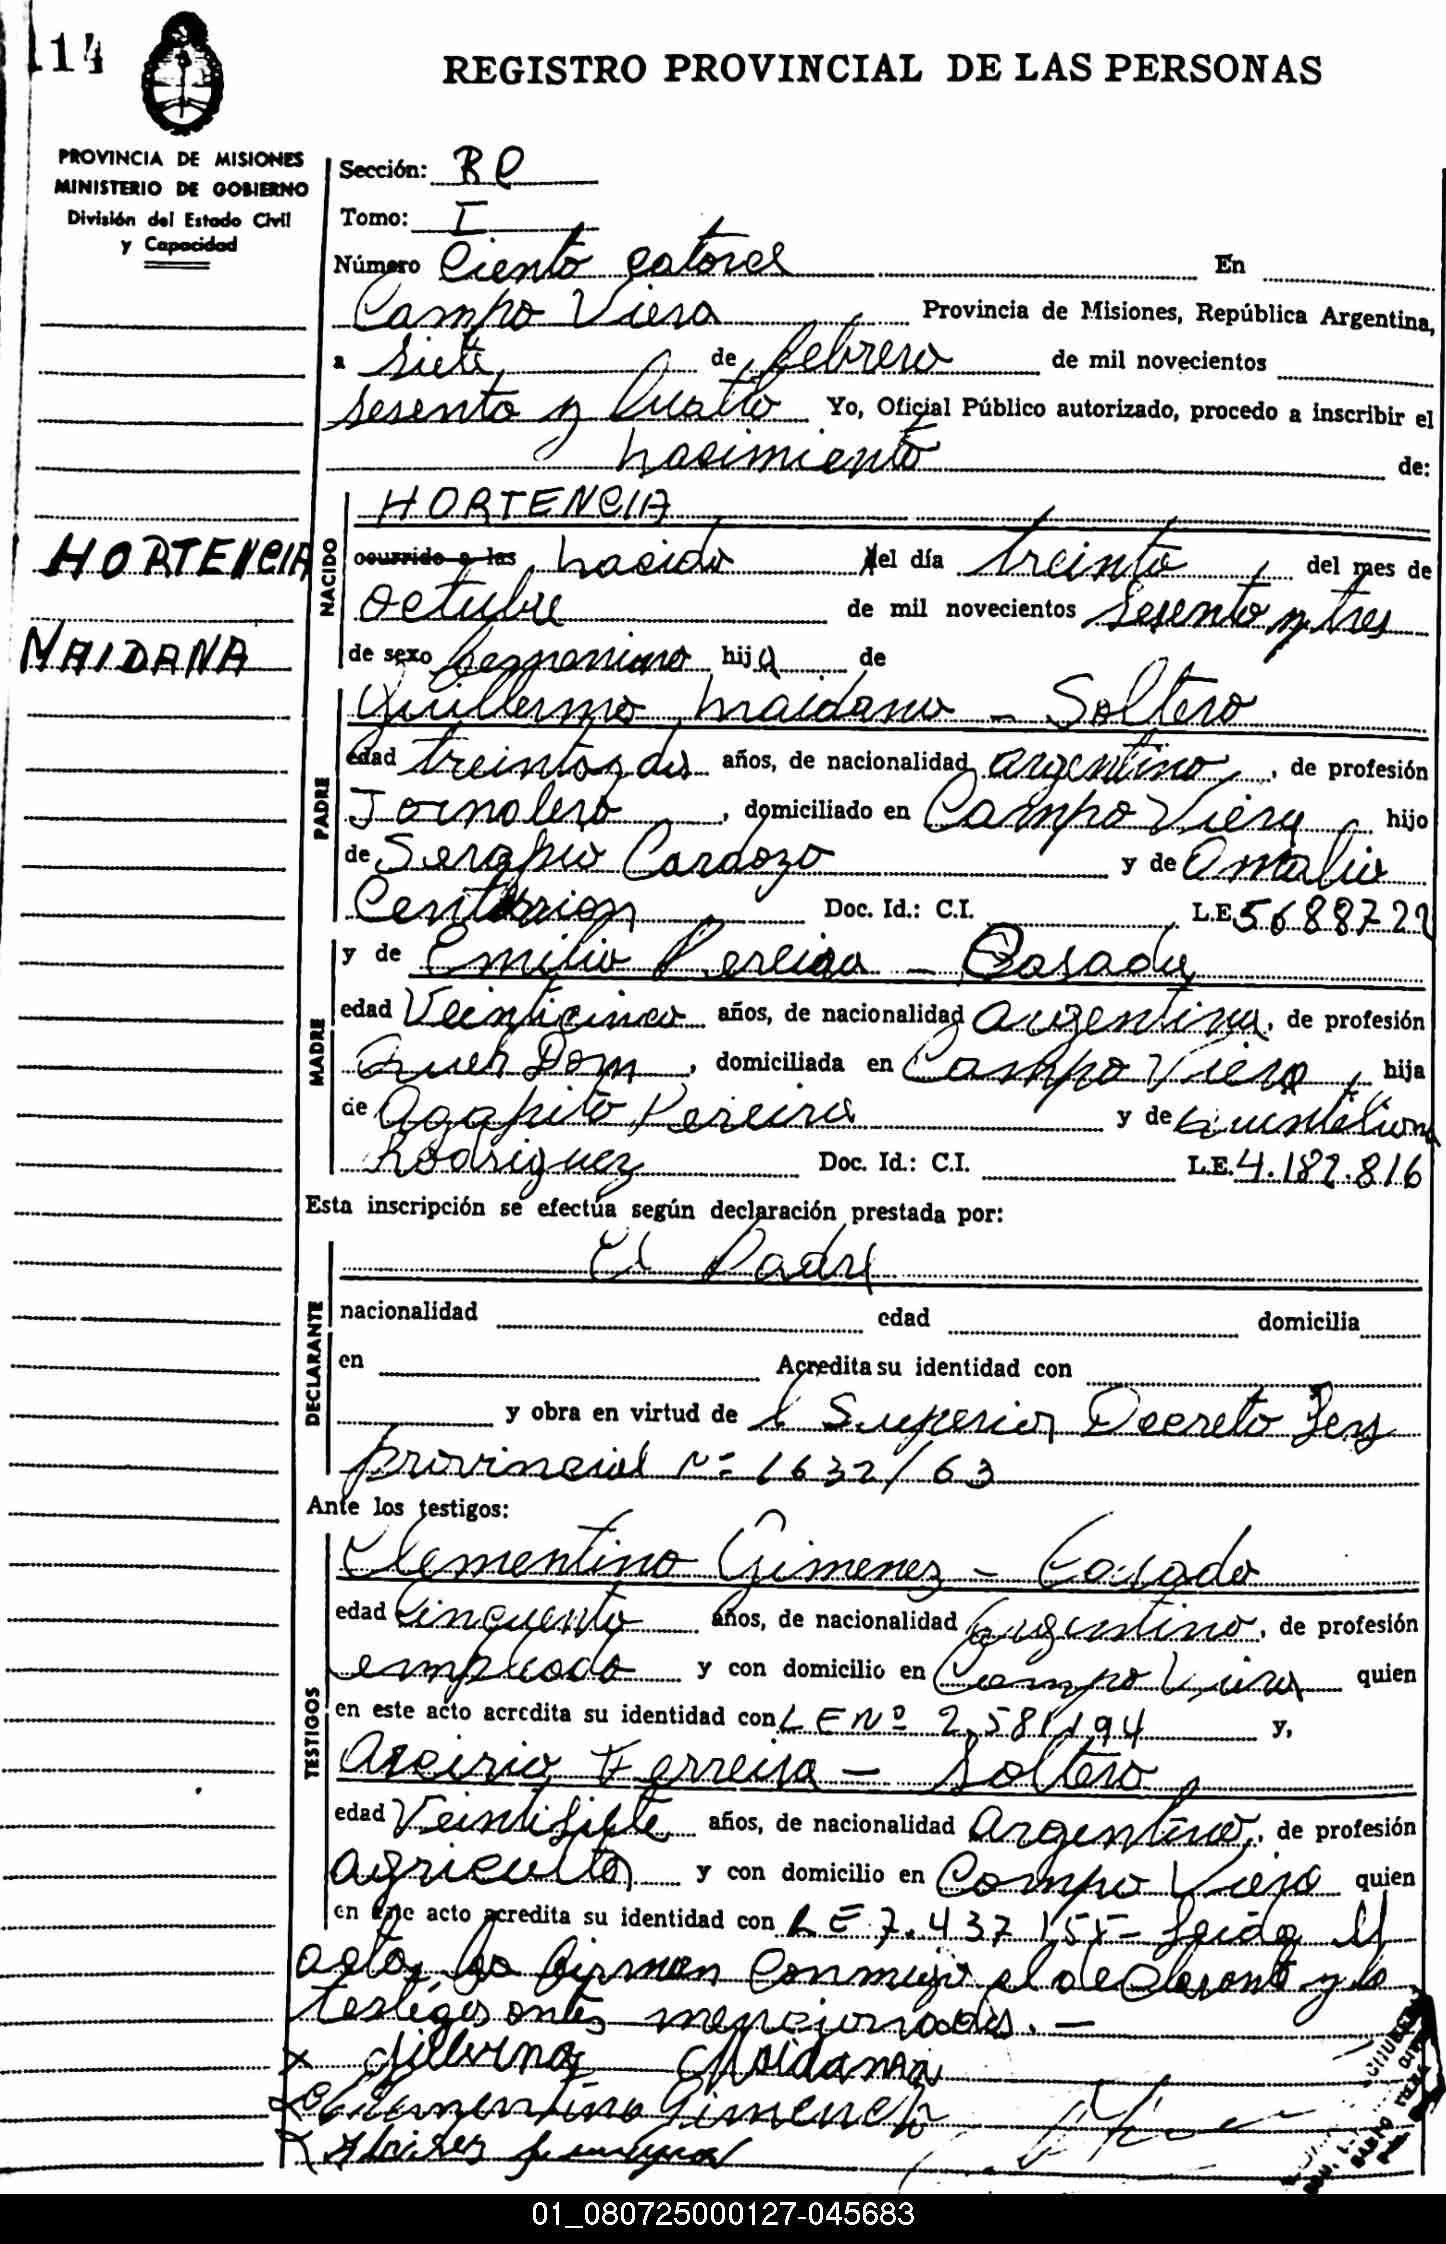 114
REGISTRO PROVINCIAL DE LAS PERSONAS
PROVINCIA DE MISIONES
MINISTERIO DE GOBIERNO
División del Estado Civil
y Capacidad
HORTENCIA
MAIDANA
Sección: RC
Tomo: I
Número Ciento catorce En
Campo Viera Provincia de Misiones, República Argentina,
a siete de febrero de mil novecientos
sesenta y cuatro Yo, Oficial Público autorizado, procedo a inscribir el
nacimiento de:
NACIDO
HORTENCIA
ocurrido a las nacida el día treinta del mes de
octubre de mil novecientos sesenta y tres
de sexo femenino hija de
PADRE
Guillermo Maidana - Soltero
edad treinta y dos años, de nacionalidad argentino, de profesión
Jornalero, domiciliado en Campo Viera hijo
de Serapio Cardozo y de Amalia
Centurion Doc. Id.: C.I. L.E. 5688722
MADRE
y de Emilia Pereira - Casada
edad Veinticinco años, de nacionalidad argentina, de profesión
Queh Dom, domiciliada en Campo Viera, hija
de Agapito Pereira y de
Rodriguez Doc. Id.: C.I. L.E. 4.182.816
Esta inscripción se efectúa según declaración prestada por:
DECLARANTE
el Padre
nacionalidad edad domicilia
en Acredita su identidad con
y obra en virtud de l Superior Decreto Ley
provincial Nº 1632/63
Ante los testigos:
TESTIGOS
Clementino Gimenez - Casado
edad Cincuenta años, de nacionalidad Argentino, de profesión
empleado y con domicilio en Campo Viera quien
en este acto acredita su identidad con L E Nº 2.581.194 y,
Ferreira - Soltero
edad Veintisiete años, de nacionalidad Argentino, de profesión
agricultor y con domicilio en Campo Viera quien
en este acto acredita su identidad con L E 7.437.155 - Leida el
acta, la firman conmigo el declarante y los
testigos antes mencionados. -
x Maidana
x Clementino Gimenez
x
01_080725000127-045683